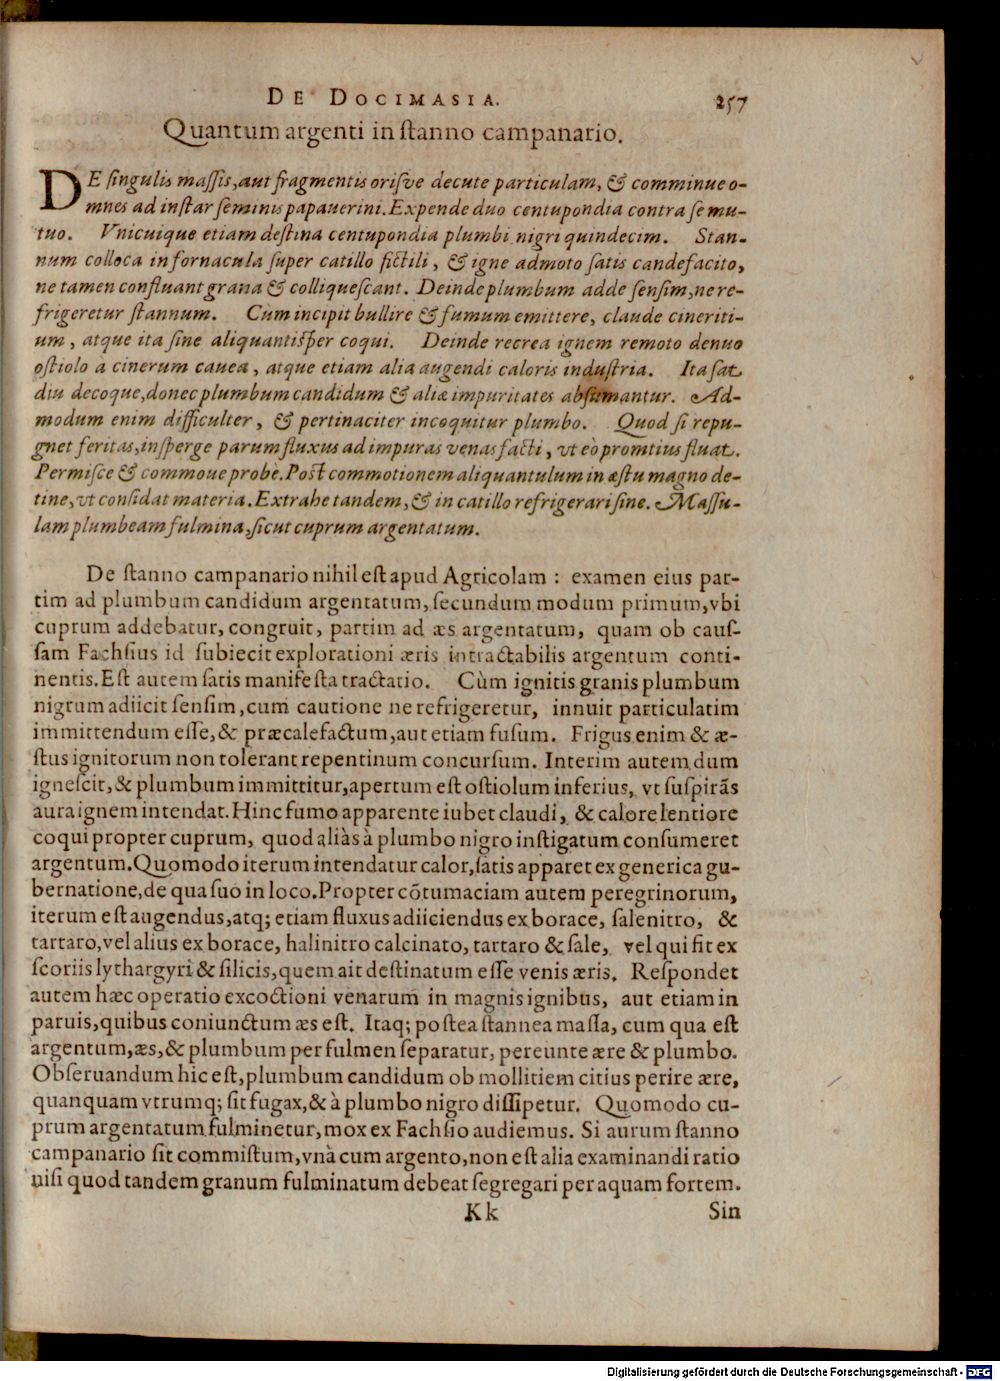 DE DOCIMASIA. 257
Quantum argenti in ſtanno campanario.
DE ſingulis maſſis, aut fragmentis oriſve decute particulam, & comminue o-
mnes ad inſtar ſeminis papauerini. Expende duo centupondia contra ſe mu-
tuo. Vnicuique etiam deſtina centupondia plumbi nigri quindecim. Stan-
num colloca in fornacula ſuper catillo fictili, & igne admoto ſatis candefacito,
ne tamen confluant grana & colliqueſcant. Deinde plumbum adde ſenſim, ne re-
frigeretur ſtannum. Cùm incipit bullire & fumum emittere, claude cineriti-
um, atque ita ſine aliquantiſper coqui. Deinde recrea ignem remoto denuo
oſtiolo à cinerum cauea, atque etiam alia augendi caloris induſtria. Ita ſat
diu decoque, donec plumbum candidum & aliæ impuritates abſumantur. Ad-
modum enim difficulter, & pertinaciter incoquitur plumbo. Quod ſi repu-
gnet feritas, inſperge parum fluxus ad impuras venas facti, vt eò promtius fluat.
Permiſce & commoue probè. Poſt commotionem aliquantulum in æſtu magno de-
tine, vt conſidat materia. Extrahe tandem, & in catillo refrigerari ſine. Maſſu-
lam plumbeam fulmina, ſicut cuprum argentatum.
De ſtanno campanario nihil eſt apud Agricolam : examen eius par-
tim ad plumbum candidum argentatum, ſecundum modum primum, vbi
cuprum addebatur, congruit, partim ad æs argentatum, quam ob cauſ-
ſam Fachſius id ſubiecit explorationi æris intractabilis argentum conti-
nentis. Eſt autem ſatis manifeſta tractatio. Cùm ignitis granis plumbum
nigrum adiicit ſenſim, cum cautione ne refrigeretur, innuit particulatim
immittendum eſſe, & præcalefactum, aut etiam fuſum. Frigus enim & æ-
ſtus ignitorum non tolerant repentinum concurſum. Interim autem dum
igneſcit, & plumbum immittitur, apertum eſt oſtiolum inferius, vt ſuſpirãs
aura ignem intendat. Hinc fumo apparente iubet claudi, & calore lentiore
coqui propter cuprum, quod aliàs à plumbo nigro inſtigatum conſumeret
argentum. Quomodo iterum intendatur calor, ſatis apparet ex generica gu-
bernatione, de qua ſuo in loco. Propter cõtumaciam autem peregrinorum,
iterum eſt augendus, atq; etiam fluxus adiiciendus ex borace, ſalenitro, &
tartaro, vel alius ex borace, halinitro calcinato, tartaro & ſale, vel qui fit ex
ſcoriis lythargyri & ſilicis, quem ait deſtinatum eſſe venis æris. Reſpondet
autem hæc operatio excoctioni venarum in magnis ignibus, aut etiam in
paruis, quibus coniunctum æs eſt. Itaq; poſtea ſtannea maſſa, cum qua eſt
argentum, æs, & plumbum per fulmen ſeparatur, pereunte ære & plumbo.
Obſeruandum hic eſt, plumbum candidum ob mollitiem citius perire ære,
quanquam vtrumq; ſit fugax, & à plumbo nigro diſſipetur. Quomodo cu-
prum argentatum fulminetur, mox ex Fachſio audiemus. Si aurum ſtanno
campanario ſit commiſtum, vnà cum argento, non eſt alia examinandi ratio
niſi quod tandem granum fulminatum debeat ſegregari per aquam fortem.
Kk Sin
Digitalisierung gefördert durch die Deutsche Forschungsgemeinschaft - DFG